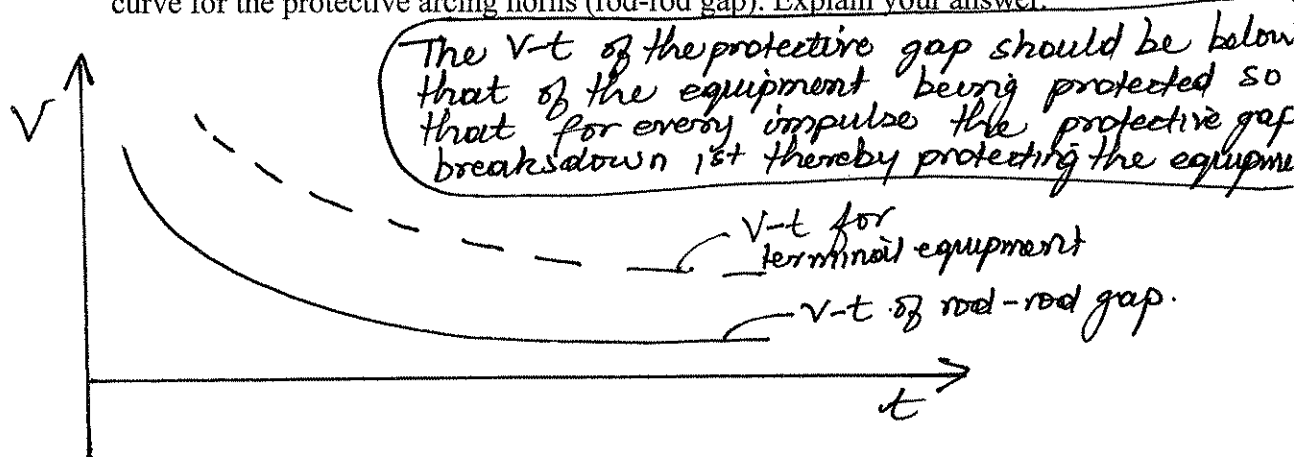 curve for the protective arcing horns (rod-rod gap). Explain your answer.
The V-t of the protective gap should be below
that of the equipment being protected so
that for every impulse the protective gap
breaksdown 1st thereby protecting the equipme
V
V-t for
terminal equipment
V-t of rod-rod gap.
t